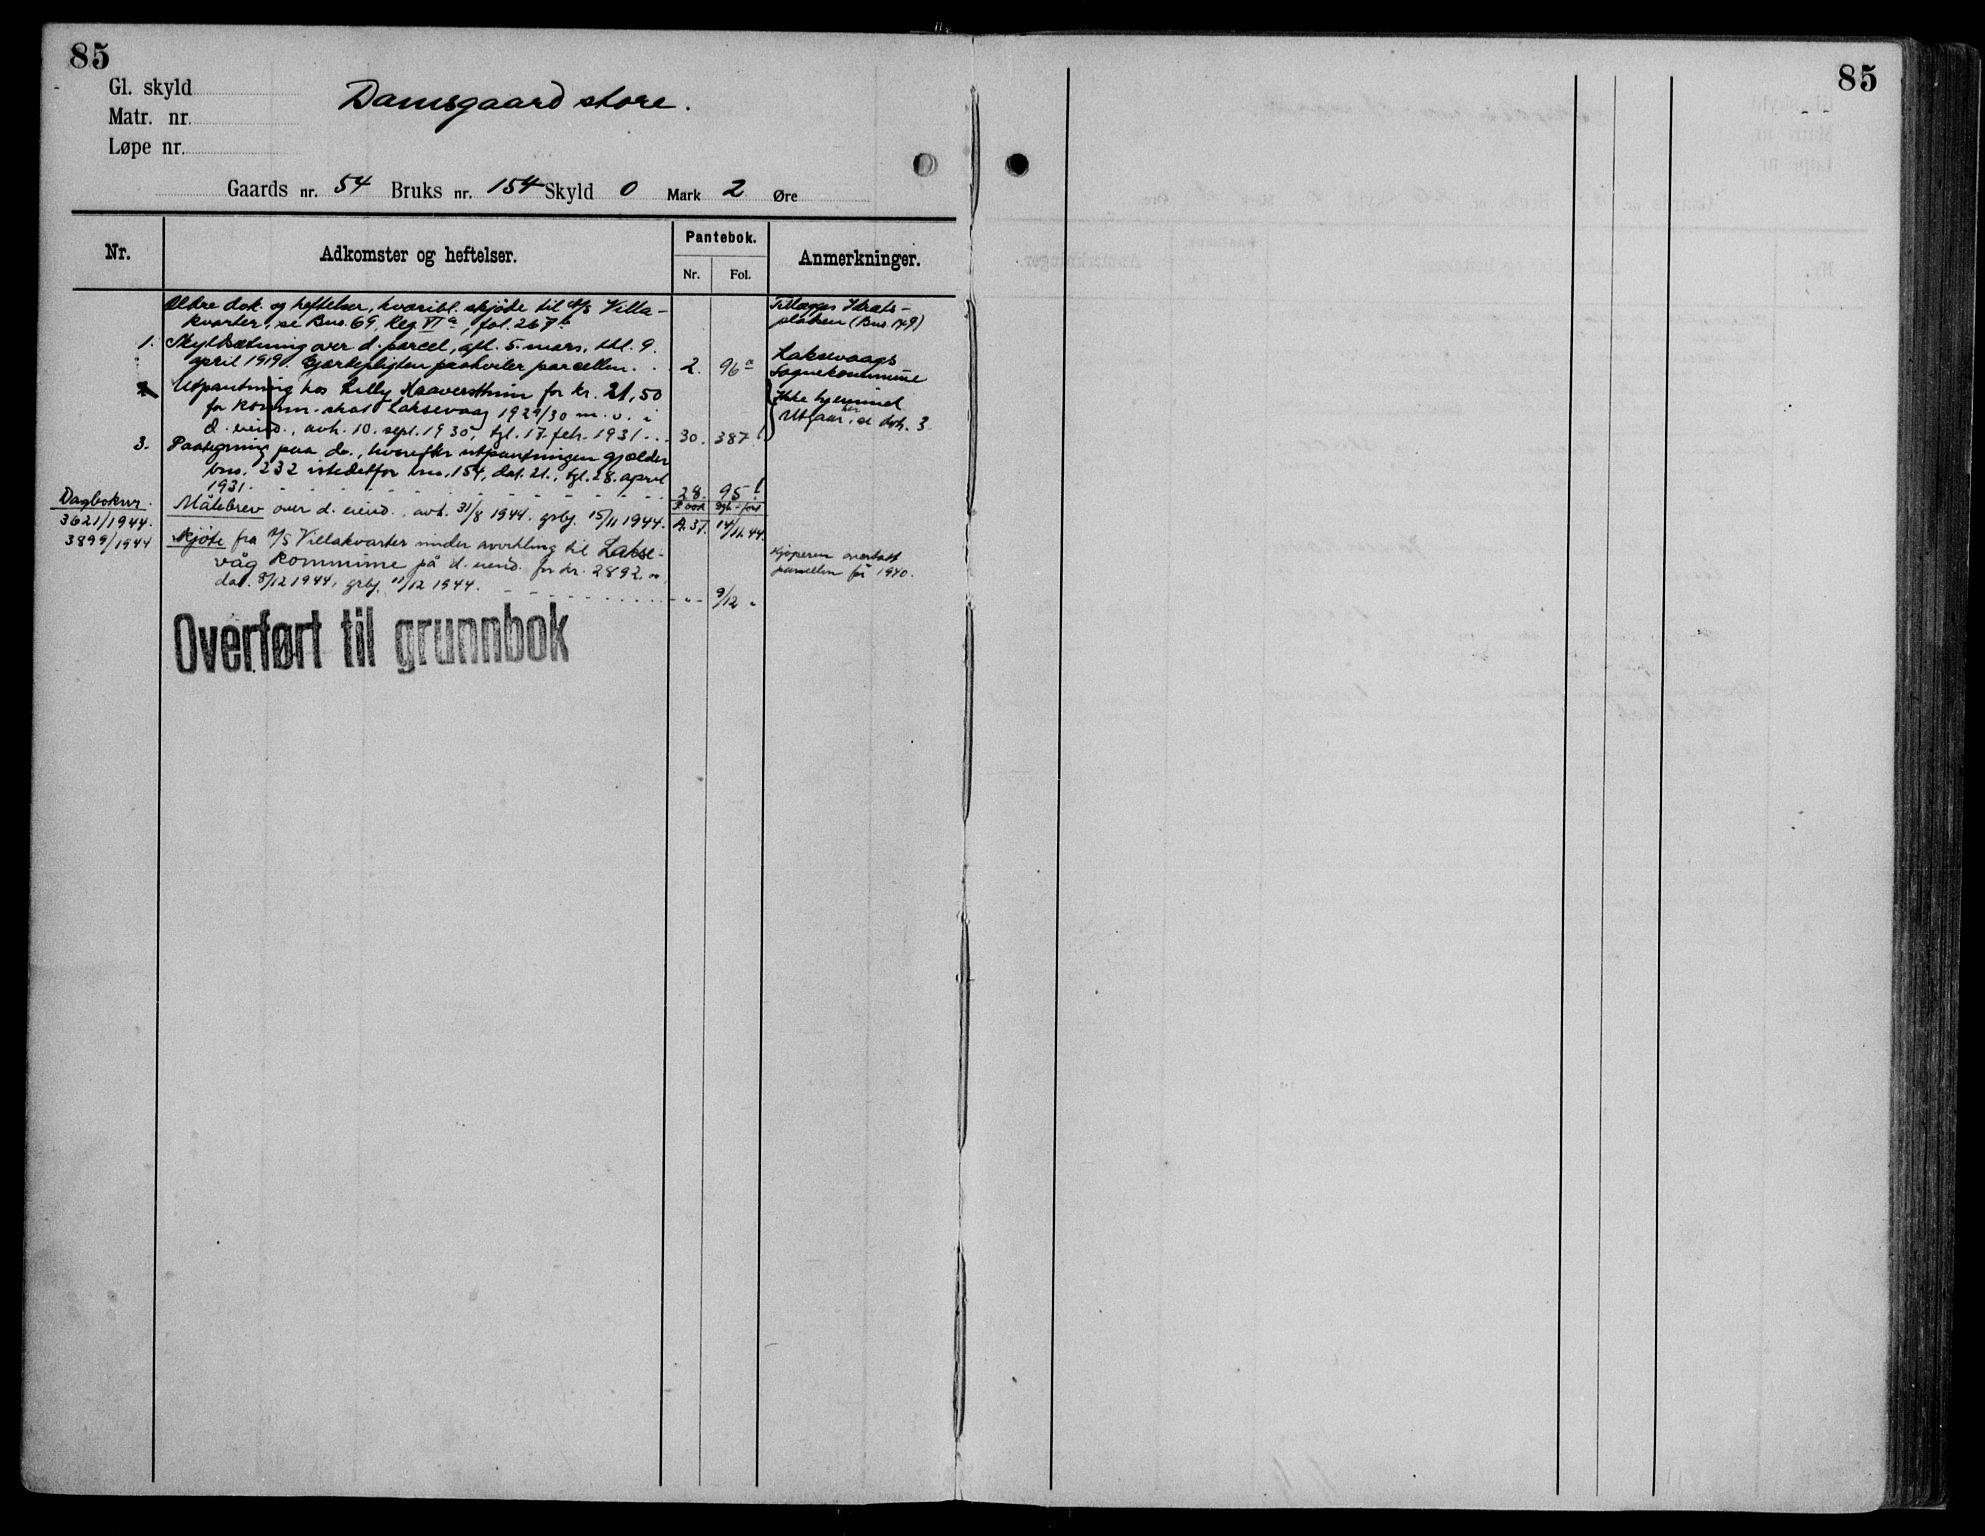 85
85
Gl. skyld
Matr. nr.
Løpe nr.
Damsgaard store.
Gaards nr. 54 Bruks nr. 154 Skyld 0 Mark 2 Øre
Nr.
Adkomster og heftelser.
Pantebok.
Nr. Fol.
Anmerkninger.
Ældre dok. og heftelser, hvoribl. skjøte til A/S Villa-
kvarter, se Bno. 69, Reg. VI a, fol. 267 b
Tillægges Idræts-
pladsen (Bno. 149)
1. Skyldsætning over d. parcel, afl. 5. mars, thl. 9.
april 1919. Gjærdepligten paahviler parcellen. 2. 96 a
Laksevaags
Sognekommune
2. Utpantning hos Lilly Haaversthun for kr. 21,50
for komm. skat Laksevaag 1929/30 m. v. i
d. eiend., avh. 10. sept. 1930, tgl. 17. feb. 1931 30. 387.
Ikke hjemmel
Utgaar her, se dok. 3
3. Paategning paa do., hvorefter utpantningen gjælder
bno. 232 istedetfor bno. 154, dat. 21., tgl. 28. april
1931. 28. 95
Dagboknr.
3621/1944. Målebrev over d. eiend., avh. 31/8 1944, grbf. 15/11 1944. A. 37. 14/11.44
3899/1944 Skjøte fra A/S Villakvarter under avvikling til Lakse-
våg kommune på d. eiend. for kr. 2892,00,
dat. 8/12 1944, grbf. 11/12 1944. - " - 9/12 "
Kjøperen overtatt
parcellen før 1940.
Overført til grunnbok